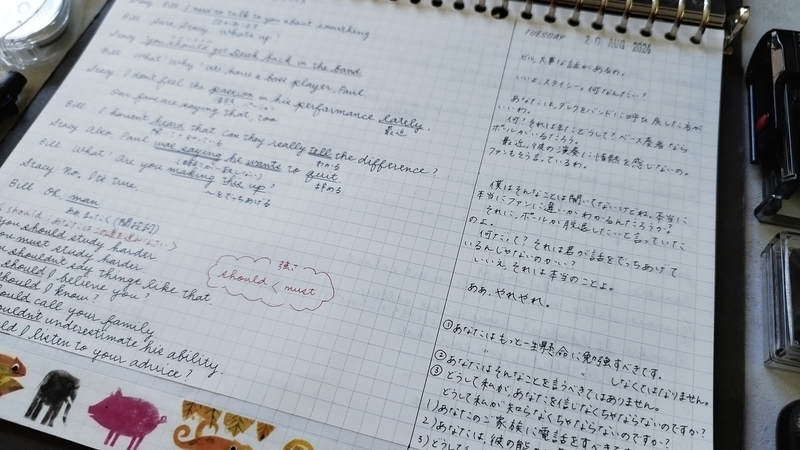 Stacy Bill I need to talk to you about something
Bill Sure Stacy What's up?
Stacy You should get back in the band
Bill What? Why? We have a bass player, Paul
Stacy I don't feel the passion in his performance lately.
最近
Our fans are saying that, too
Bill I haven't heard that Can they really tell the difference?
わかる
Stacy Also Paul was saying he wants to quit
辞める
Bill What? Are you making this up?
〜をでっちあげる
Stacy No, It's true.
Bill Oh, man
should
you should study harder
you must study harder
shouldn't say things like that
should I believe you?
should I know?
should call your family
shouldn't underestimate his ability.
should I listen to your advice?
強さ
should < must
TUESDAY 20 AUG 2024
ビル、大事な話があるの。
いいよ、ステイシー。何なんだい?
あなたは、デレクをバンドに呼び戻したほうが
いいわ。
何?それはまたどうして?ベース奏者なら
ポールがいるだろう。
最近、彼の演奏に情熱を感じないの。
ファンもそう言っているわ。
僕はそんなことは聞いてないけどね。本当に
本当にファンに違いがわかるんだろうか?
それに、ポールが脱退したいと言っていた
のよ。
何だって?それは君が話をでっちあげて
いるんじゃないのかい?
いいえ、それは本当のことよ。
ああ、やれやれ。
①あなたはもっと一生懸命に勉強すべきです。
〃 しなくてはなりません。
②あなたはそんなことを言うべきではありません。
③どうして私が、あなたを信じなくちゃならないのですか?
どうして私が知らなくちゃならないのですか?
1)あなたのご家族に電話をすべきで
2)あなたは、彼の能
3)どうして